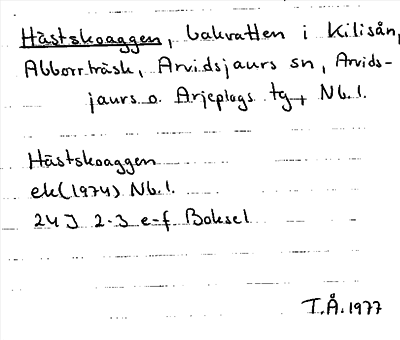 Hästskoaggen, bakvatten i Kilisån,
Abborrträsk, Arvidsjaurs sn, Arvids-
jaurs o. Arjeplogs tg, Nb.l.
Hästskoaggen
ek(1974) Nb.l.
24J 2-3 e-f Boksel
T.Å. 1977